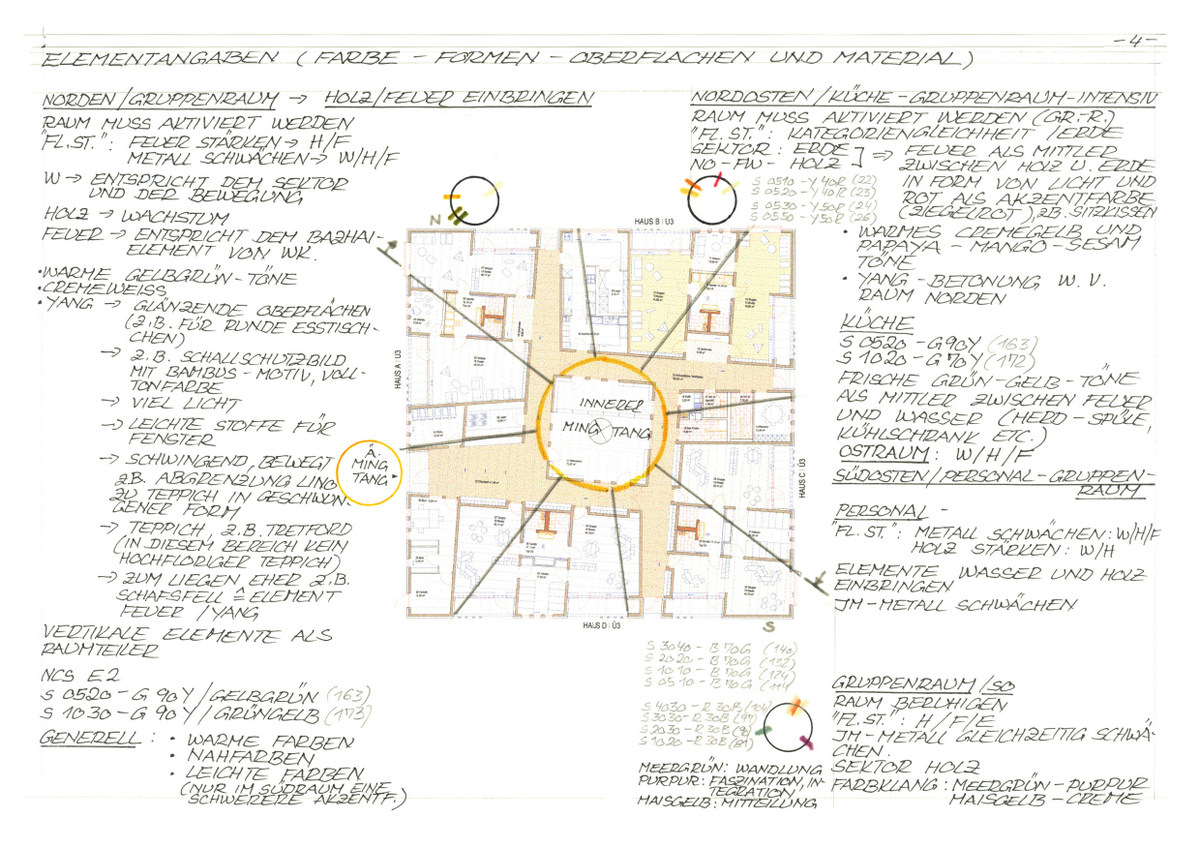 -4-
ELEMENTANGABEN (FARBE - FORMEN - OBERFLÄCHEN UND MATERIAL)
NORDEN/GRUPPENRAUM → HOLZ/FEUER EINBRINGEN
RAUM MUSS AKTIVIERT WERDEN
"FL.ST.": FEUER STÄRKEN → H/F
METALL SCHWÄCHEN → W/H/F
W → ENTSPRICHT DEM SEKTOR
UND DER BEWEGUNG
HOLZ → WACHSTUM
FEUER → ENTSPRICHT DEM BAZHAI-
ELEMENT VON WK.
• WARME GELBGRÜN-TÖNE
• CREMEWEISS
• YANG → GLÄNZENDE OBERFLÄCHEN
(Z.B. FÜR RUNDE ESSTISCH-
CHEN)
→ Z.B. SCHALLSCHUTZBILD
MIT BAMBUS-MOTIV, VOLL-
TONFARBE
→ VIEL LICHT
→ LEICHTE STOFFE FÜR
FENSTER
→ SCHWINGEND, BEWEGT
ZB. ABGRENZUNG LINO
ZU TEPPICH IN GESCHWUN-
GENER FORM
→ TEPPICH, Z.B. TRETFORD
(IN DIESEM BEREICH KEIN
HOCHFLORIGER TEPPICH)
→ ZUM LIEGEN EHER Z.B.
SCHAFSFELL ≙ ELEMENT
FEUER/YANG
VERTIKALE ELEMENTE ALS
RAUMTEILER
NCS E2
S 0520 - G 90Y/GELBGRÜN (163)
S 1030 - G 90Y/GRÜNGELB (173)
GENERELL: • WARME FARBEN
• NAHFARBEN
• LEICHTE FARBEN
(NUR IM SÜDRAUM EINE
SCHWERERE AKZENTF.)
N
HAUS B | Ü3
HAUS A | Ü3
HAUS C | Ü3
HAUS D | Ü3
S
INNERER
MING TANG
Ä.
MING
TANG
NORDOSTEN/KÜCHE-GRUPPENRAUM-INTENSIV
RAUM MUSS AKTIVIERT WERDEN (GR.-R.)
"FL.ST.": KATEGORIENGLEICHHEIT/ERDE
SEKTOR: ERDE
NO-FW- HOLZ ] ⇒ FEUER ALS MITTLER
ZWISCHEN HOLZ U. ERDE
IN FORM VON LICHT UND
ROT ALS AKZENTFARBE
(ZIEGELROT), ZB. SITZKISSEN
S 0510 - Y40R (22)
S 0520 - Y40R (23)
S 0530 - Y50R (24)
S 0550 - Y50R (26)
• WARMES CREMEGELB UND
PAPAYA - MANGO-SESAM
TÖNE
• YANG-BETONUNG W. V.
RAUM NORDEN
KÜCHE
S 0520 - G90Y (163)
S 1020 - G70Y (172)
FRISCHE GRÜN-GELB-TÖNE
ALS MITTLER ZWISCHEN FEUER
UND WASSER (HERD-SPÜLE,
KÜHLSCHRANK ETC.)
OSTRAUM: W/H/F
SÜDOSTEN/PERSONAL-GRUPPEN-
RAUM
PERSONAL -
"FL.ST": METALL SCHWÄCHEN: W/H/F
HOLZ STÄRKEN: W/H
ELEMENTE WASSER UND HOLZ
EINBRINGEN
JM-METALL SCHWÄCHEN
GRUPPENRAUM/SO
RAUM BERUHIGEN
"FL.ST": H/F/E
JM-METALL GLEICHZEITIG SCHWÄ-
CHEN.
SEKTOR HOLZ
FARBKLANG: MEERGRÜN-PURPUR
MAISGELB-CREME
S 3040 - B70G (140)
S 2020 - B70G (132)
S 1010 - B70G (124)
S 0510 - B70G
S 4030 - R30B
S 3030 - R30B
S 2030 - R30B
S 1020 - R30B (81)
MEERGRÜN: WANDLUNG
PURPUR: FASZINATION, IN-
TEGRATION,
MAISGELB: MITTEILUNG